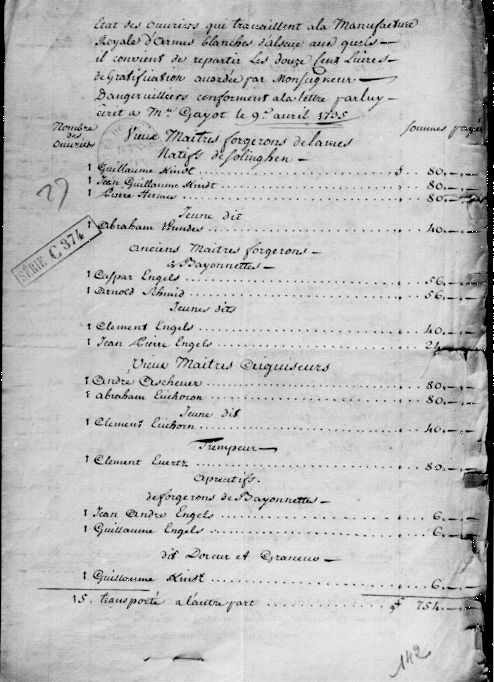 Etat des ouvriers qui travaillent ala Manufacture
Royale d'Armes blanches d'alsace aux quels
il convient de repartir Les douze Cent Livres
de Gratification accordée par Monseigneur
Dangervilliers conforment ala lettre par luy
écrit a Mr Gayot le 9e avril 1735
Nombre des ouvriers
sommes payé
Vieux Maitres forgerons de lames
Natifs de Solinghen
1 Guillaume Kindt 80.
1 Jean Guillaume Kindt 80.
1 Pierre Hermes 80.
Jeune dit
1 Abraham Wundes 40.
27
SÉRIE C 374
anciens Maitres forgerons
a Bayonnettes
1 Caspar Engels 56.
1 Arnold Schmid 56.
Jeunes dits
1 Clement Engels 40.
1 Jean Pierre Engels 24.
Vieux Maitres Euguiseurs
1 Andre Ascheuer 80.
1 Abraham Euchoron 80.
Jeune dit
1 Clement Euchorn 40.
Trempeur
1 Clement Evertz 80.
Aprentifs
de forgerons de Bayonnettes
1 Jean Andre Engels 6.
1 Guillaume Engels 6.
dit Doreur et Graveur
1 Guillaume Kindt 6.
15. transporté a l'autre part 754.
142